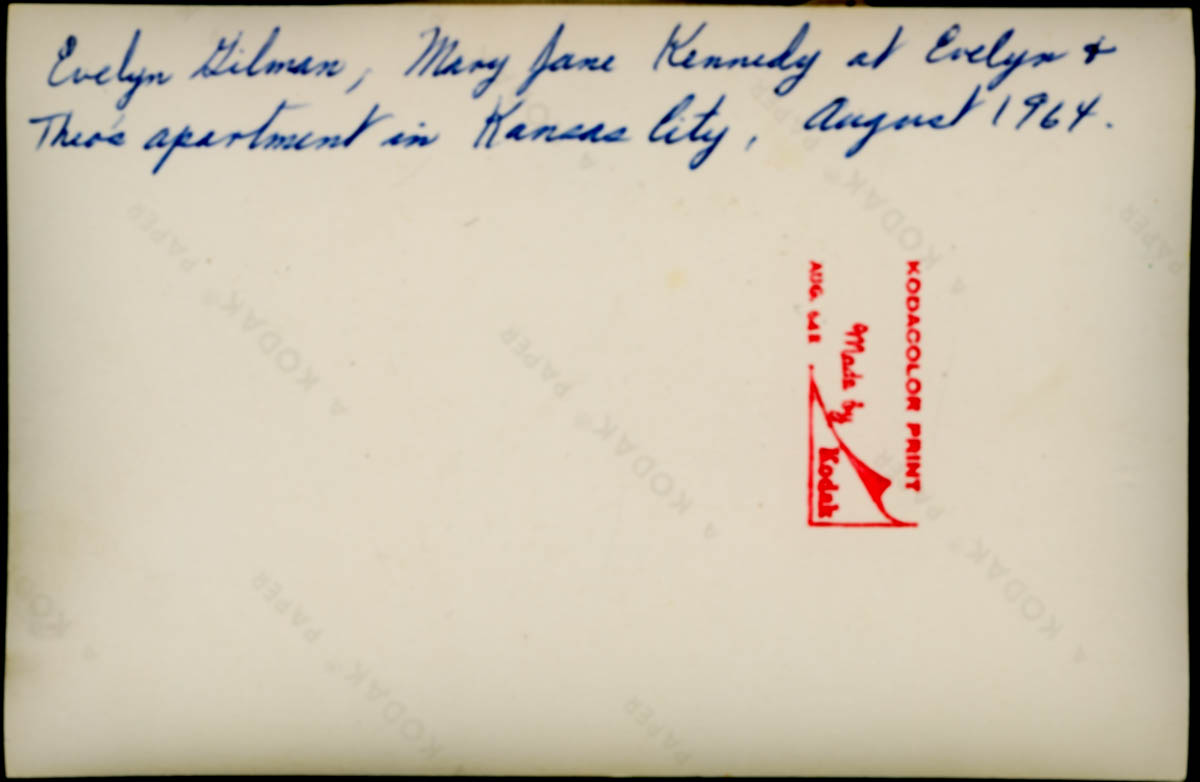 Evelyn Gilman, Mary Jane Kennedy at Evelyn &
Theo's apartment in Kansas City, August 1964.
KODACOLOR PRINT
Made by
Kodak
AUG 64
KODAK PAPER
KODAK PAPER
KODAK PAPER
KODAK PAPER
KODAK PAPER
PAPER
PAPER